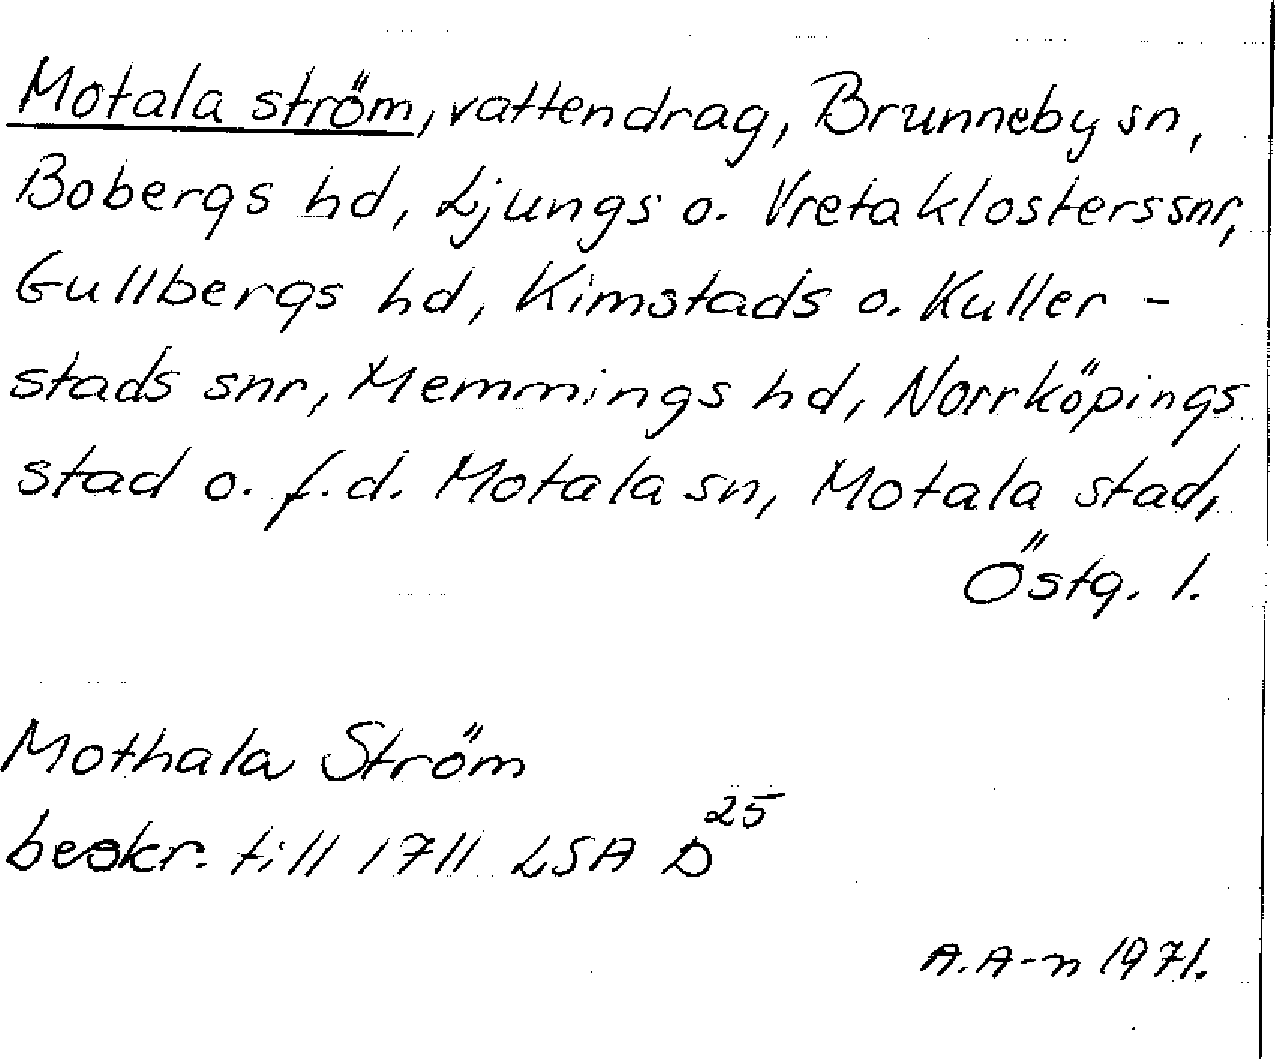 Motala ström, vattendrag, Brunneby sn,
Bobergs hd, Ljungs o. Vreta klosters snr,
Gullbergs hd, Kimstads o. Kuller-
stads snr, Memmings hd, Norrköpings
stad o. f.d. Motala sn, Motala stad,
Östg. l.
Mothala Ström
beskr. till 1711 LSA D25
A.A-n 1971.